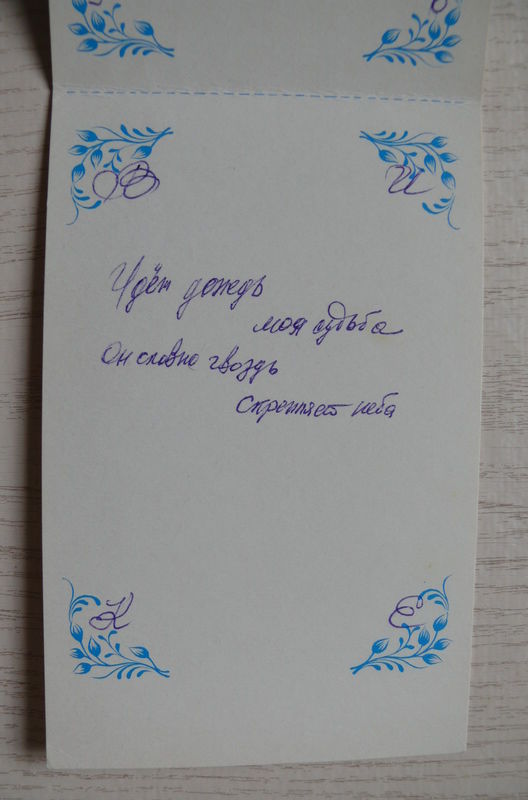 В И
Идёт дождь
моя судьба
Он словно гвоздь
Скрепляет неба
К Е